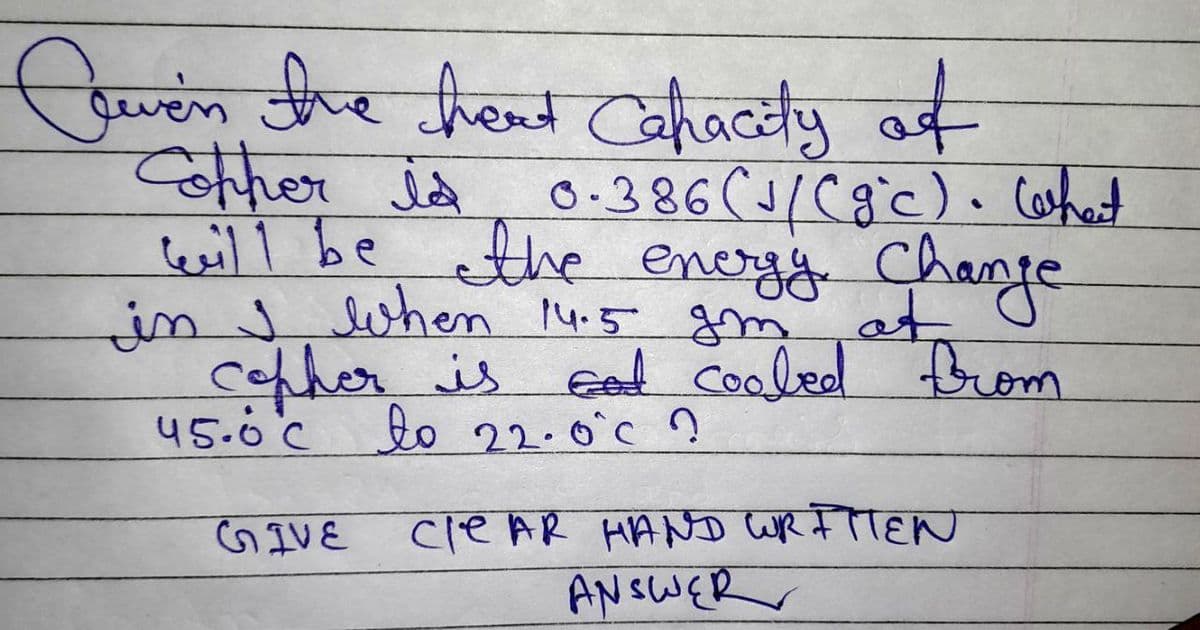 Given the heat Capacity of
Copper is 0.386(J/(g°c). What
will be the energy Change
in J when 14.5 gm of
copper is cooled from
45.0°C to 22.0°C ?
GIVE CleAR HAND WRITTEN
ANSWER